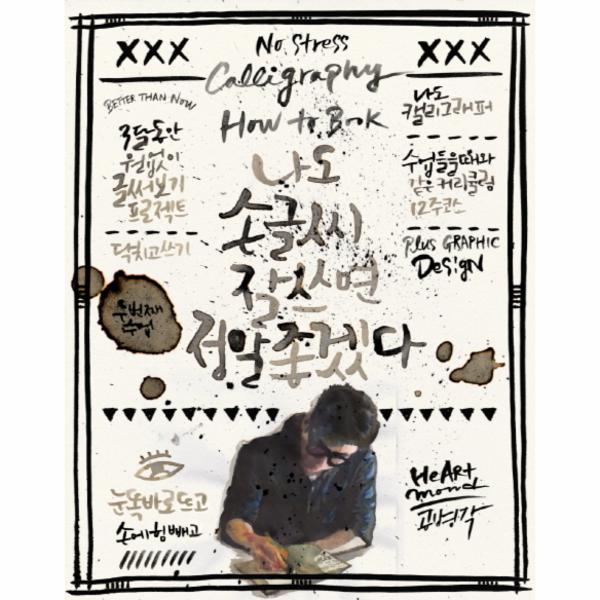 XXX
No Stress
Calligraphy
How to Book
XXX
BETTER THAN NOW
3달동안
원없이
글써보기
프로젝트
닥치고쓰기
두번째
수업
나도
손글씨
잘쓰면
정말좋겠다
나도
캘리그래퍼
수업들을때와
같은커리큘럼
12주코스
Plus GRAPHIC
DeSiGN
눈똑바로뜨고
손에힘빼고
HeARt
mond
공병각